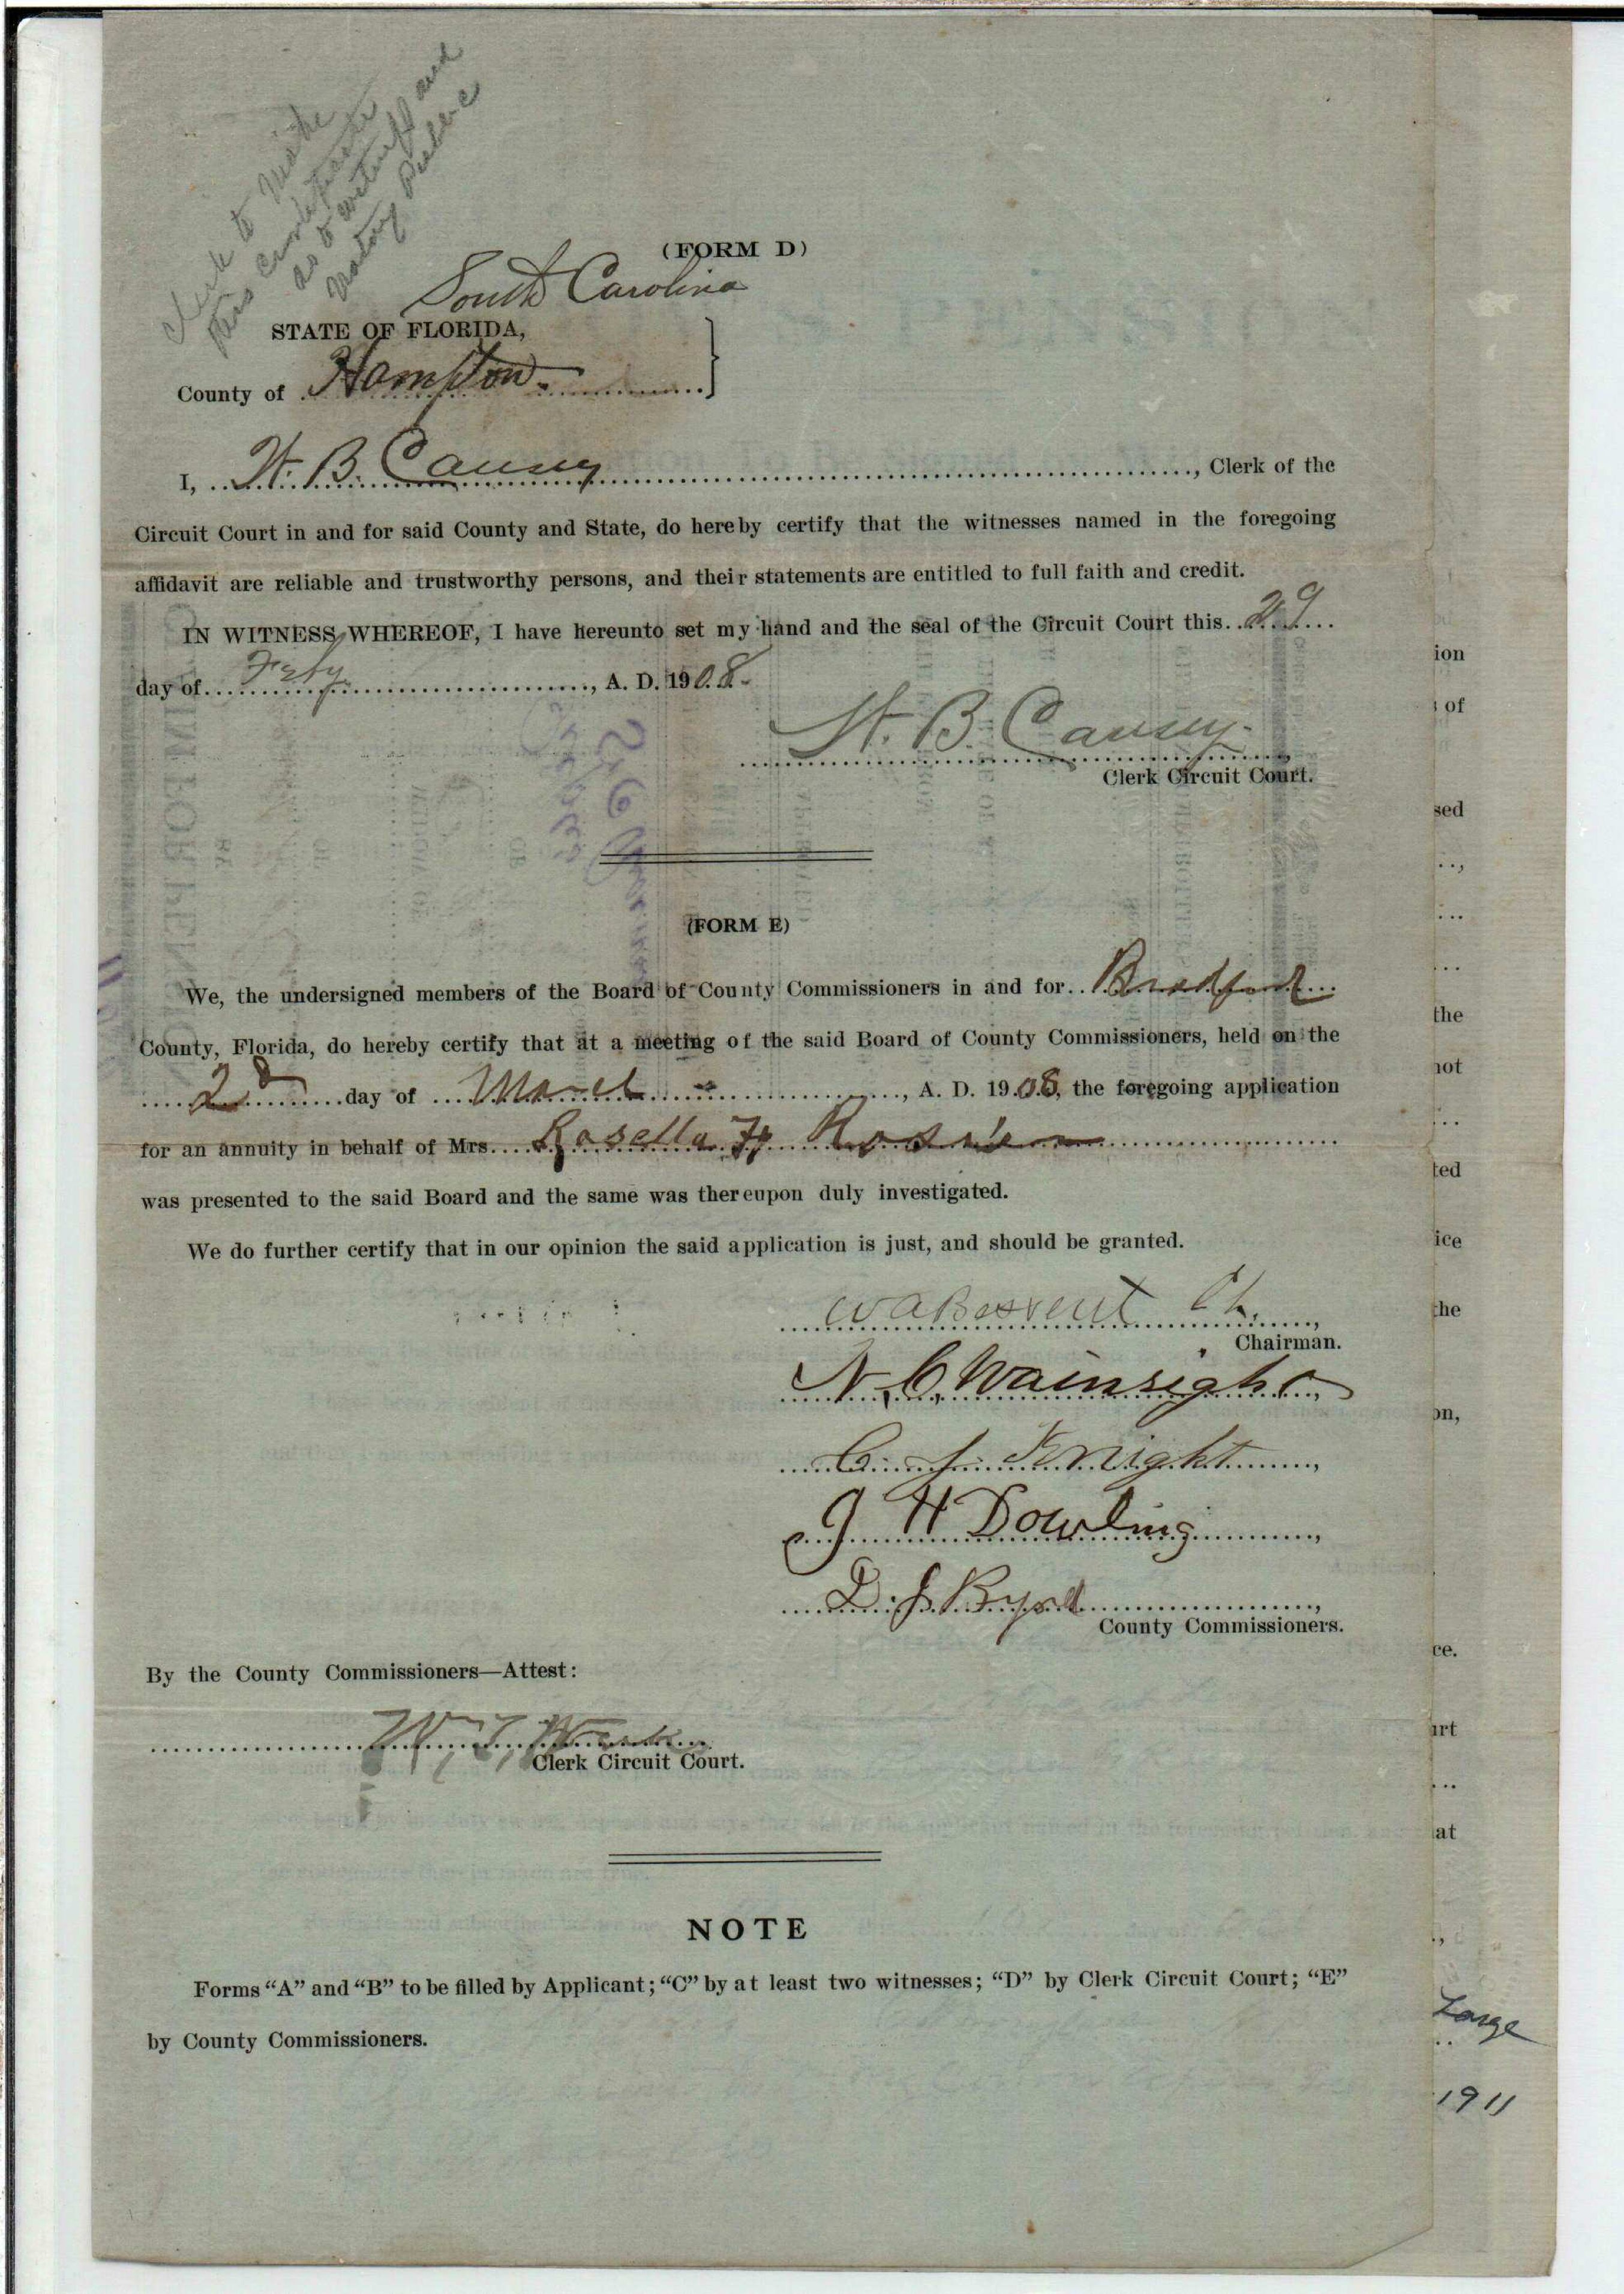 Clerk to Make
this certificate
as to witness and
Notary Public
(FORM D)
South Carolina
STATE OF FLORIDA,
County of Hampton
I, W. B. Causey, Clerk of the
Circuit Court in and for said County and State, do hereby certify that the witnesses named in the foregoing
affidavit are reliable and trustworthy persons, and their statements are entitled to full faith and credit.
IN WITNESS WHEREOF, I have hereunto set my hand and the seal of the Circuit Court this 29
day of Feby, A. D. 1908.
W. B. Causey
Clerk Circuit Court.
(FORM E)
We, the undersigned members of the Board of County Commissioners in and for Bradford
County, Florida, do hereby certify that at a meeting of the said Board of County Commissioners, held on the
2d day of March, A. D. 1908, the foregoing application
for an annuity in behalf of Mrs. Rosella
was presented to the said Board and the same was thereupon duly investigated.
We do further certify that in our opinion the said application is just, and should be granted.
Ch.
Chairman.
N. C. Wainright
Knight
J H Dowling
D. J. Byrd
County Commissioners.
By the County Commissioners—Attest:
Clerk Circuit Court.
NOTE
Forms "A" and "B" to be filled by Applicant; "C" by at least two witnesses; "D" by Clerk Circuit Court; "E"
by County Commissioners.
ion
of
sed
the
not
ted
ice
the
on,
ce.
urt
at
Large
1911